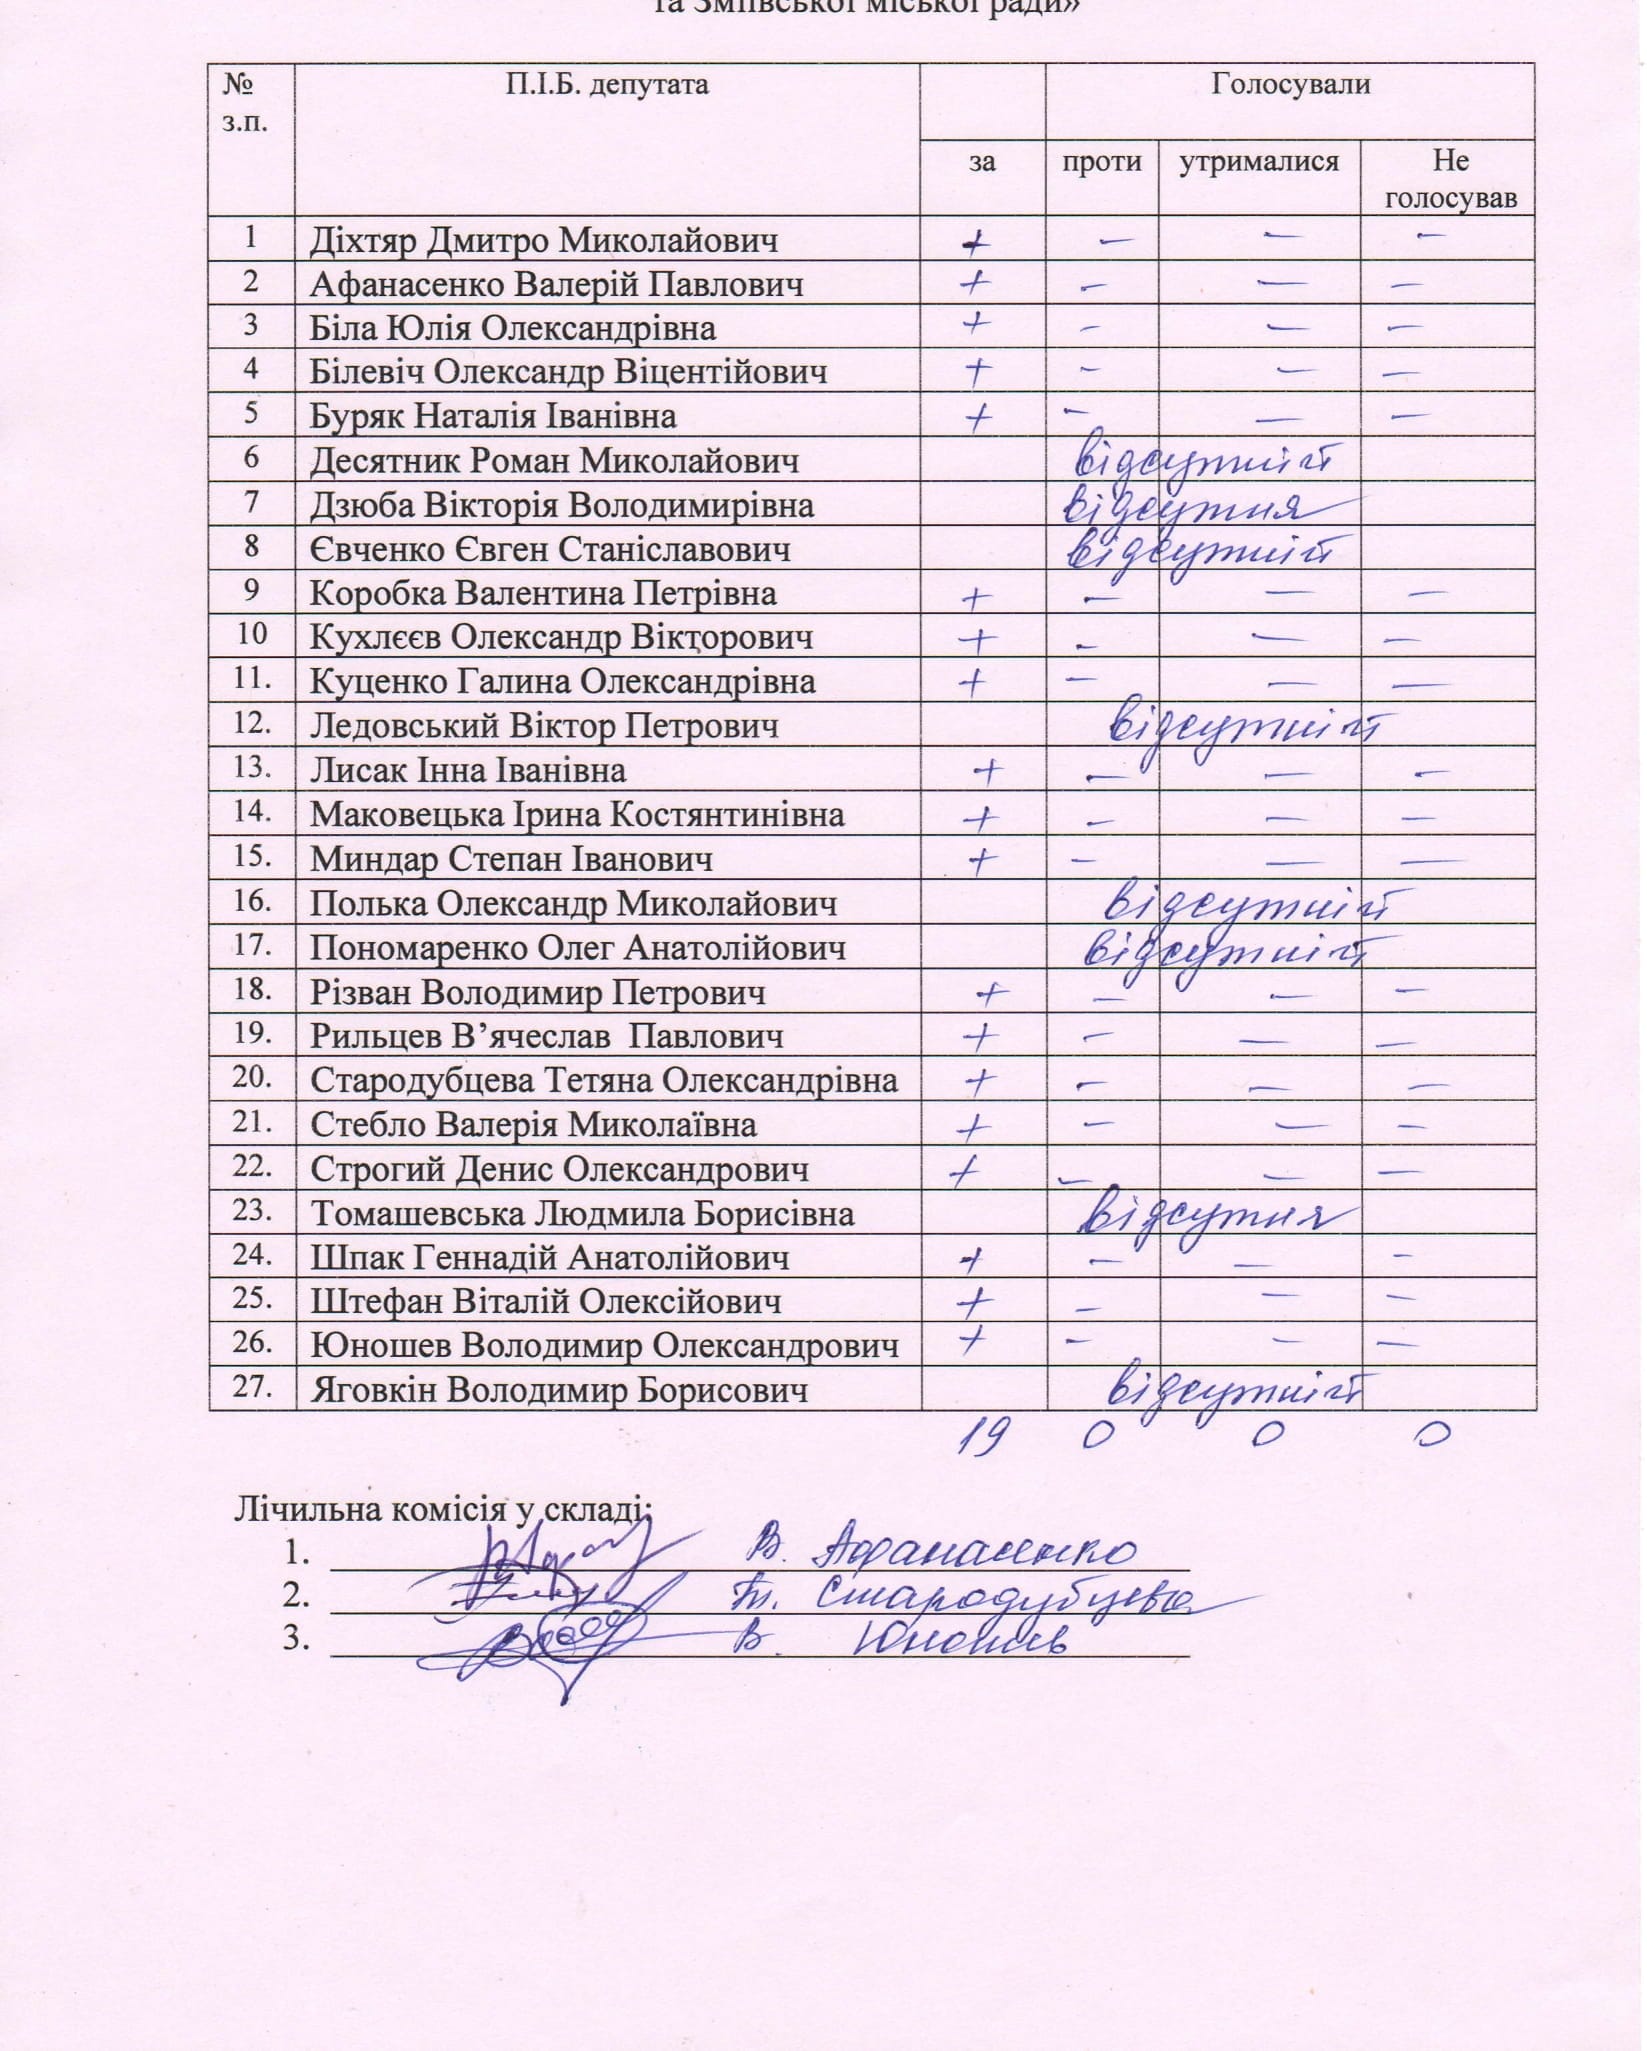 та Зміївської міської ради»
№ з.п. П.І.Б. депутата Голосували
за проти утрималися Не голосував
1 Діхтяр Дмитро Миколайович + – – –
2 Афанасенко Валерій Павлович + – – –
3 Біла Юлія Олександрівна + – – –
4 Білевіч Олександр Віцентійович + – – –
5 Буряк Наталія Іванівна + – – –
6 Десятник Роман Миколайович відсутній
7 Дзюба Вікторія Володимирівна відсутня
8 Євченко Євген Станіславович відсутній
9 Коробка Валентина Петрівна + – – –
10 Кухлєєв Олександр Вікторович + – – –
11. Куценко Галина Олександрівна + – – –
12. Ледовський Віктор Петрович відсутній
13. Лисак Інна Іванівна + – – –
14. Маковецька Ірина Костянтинівна + – – –
15. Миндар Степан Іванович + – – –
16. Полька Олександр Миколайович відсутній
17. Пономаренко Олег Анатолійович відсутній
18. Різван Володимир Петрович + – – –
19. Рильцев В’ячеслав Павлович + – – –
20. Стародубцева Тетяна Олександрівна + – – –
21. Стебло Валерія Миколаївна + – – –
22. Строгий Денис Олександрович + – – –
23. Томашевська Людмила Борисівна відсутня
24. Шпак Геннадій Анатолійович + – – –
25. Штефан Віталій Олексійович + – – –
26. Юношев Володимир Олександрович + – – –
27. Яговкін Володимир Борисович відсутній
19 0 0 0
Лічильна комісія у складі:
1. В. Афанасенко
2. Т. Стародубцева
3. В. Юношев